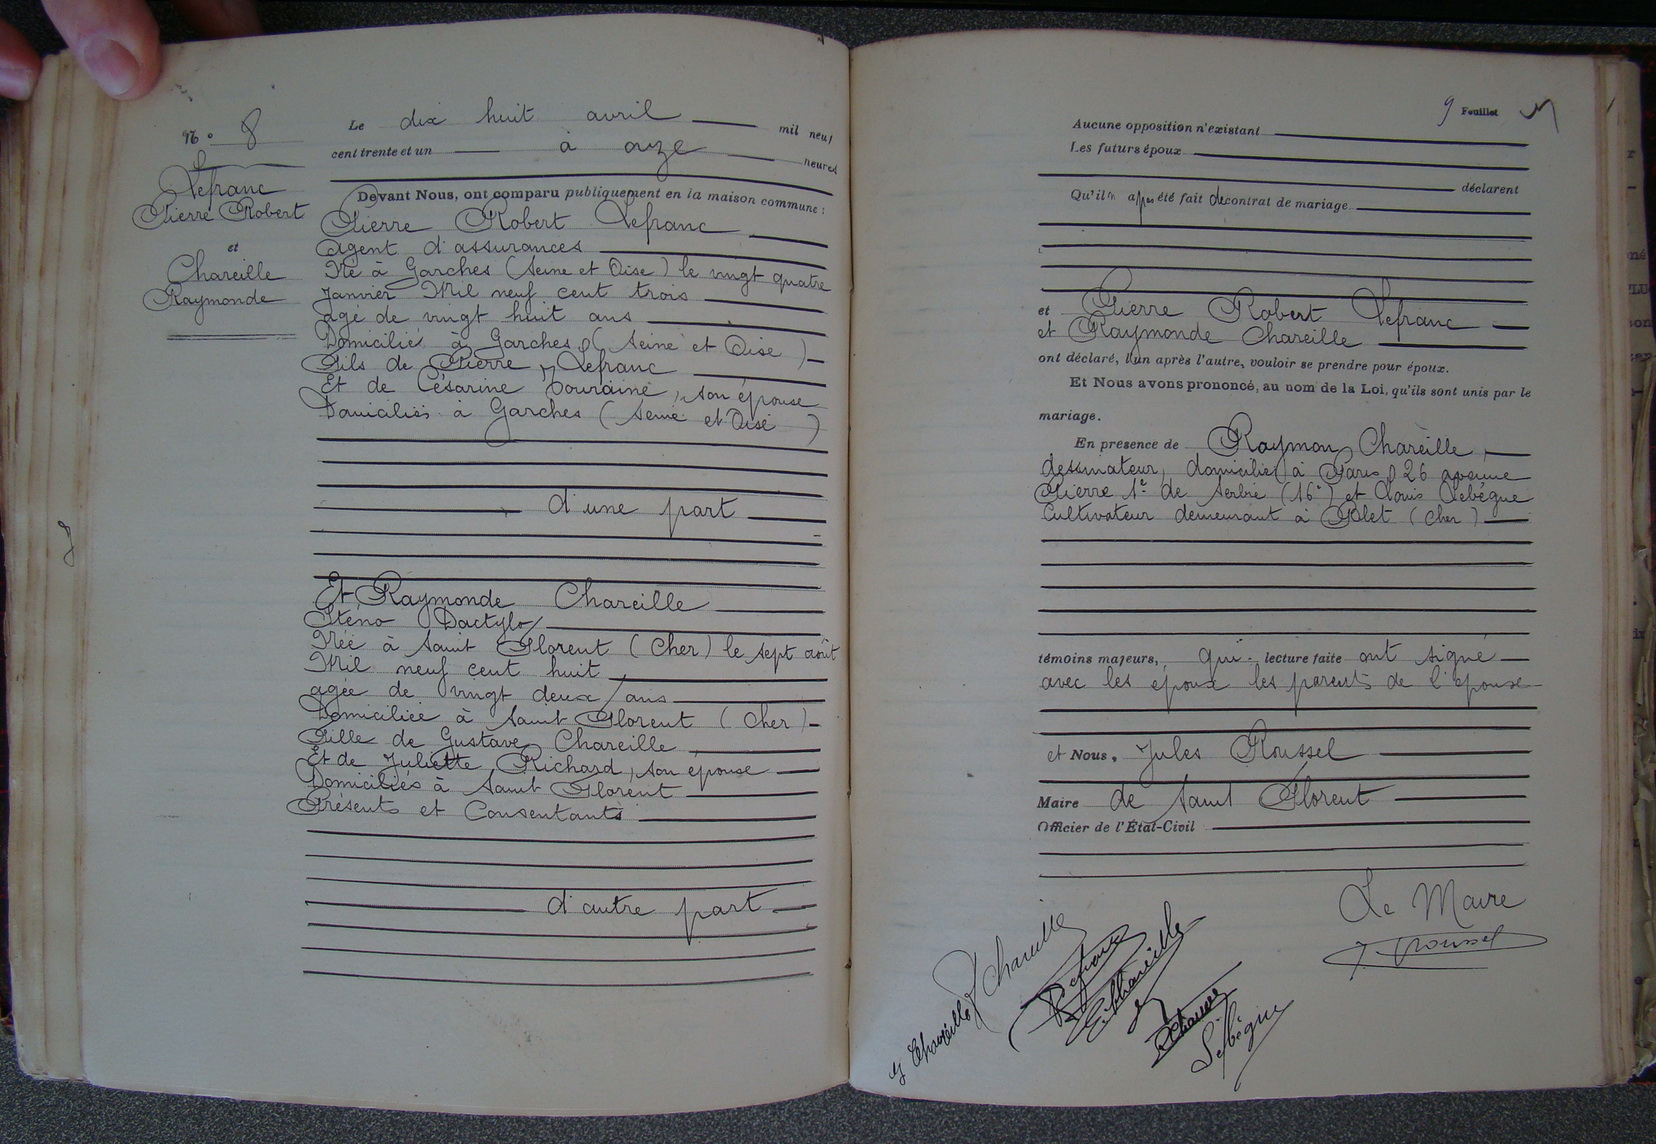 N° 8
Lefranc
Pierre Robert
et
Chareille
Raymonde
Le dix huit avril mil neuf
cent trente et un à onze heures
Devant Nous, ont comparu publiquement en la maison commune :
Pierre Robert Lefranc
agent d'assurances
Né à Garches (Seine et Oise) le vingt quatre
Janvier Mil neuf cent trois
agé de vingt huit ans
Domicilié à Garches (Seine et Oise)
Fils de Pierre Lefranc
Et de Césarine Touraine, son épouse
Domiciliés à Garches (Seine et Oise)
d'une part
Et Raymonde Chareille
Sténo Dactylo
Née à Saint Florent (Cher) le sept août
Mil neuf cent huit
agée de vingt deux ans
Domiciliée à Saint Florent (Cher)
Fille de Gustave Chareille
Et de Juliette Richard, son épouse
Domiciliés à Saint Florent
Présents et Consentants
d'autre part
9 Feuillet
Aucune opposition n'existant
Les futurs époux
déclarent
Qu'il n'a pas été fait de contrat de mariage
et Pierre Robert Lefranc
et Raymonde Chareille
ont déclaré, l'un après l'autre, vouloir se prendre pour époux.
Et Nous avons prononcé, au nom de la Loi, qu'ils sont unis par le
mariage.
En présence de Raymon Chareille,
dessinateur, domicilié à Paris 26 avenue
Pierre 1er de Serbie (16e) et Louis Lebégue
Cultivateur demeurant à (Cher)
témoins majeurs, qui lecture faite ont signé
avec les époux les parents de l'épouse
et Nous, Jules Roussel
Maire de Saint Florent
Officier de l'État-Civil
Le Maire
J. Roussel
Chareille
Chareille
Lebégue